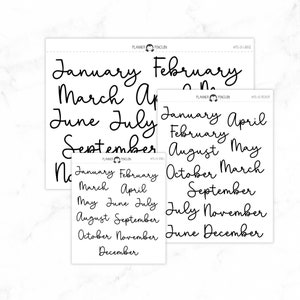 PLANNER PENGUIN
January February
March Ap
June July
September
No
January April
February
August May
October March
September
July November
June December
PLANNER PENGUIN
January February
March April
May June July
August September
October November
December